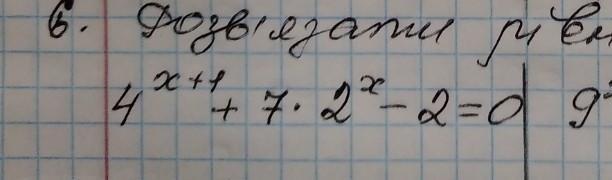 6. Розв'язати рівн
4^{x+1} + 7 · 2^x - 2 = 0 | 9